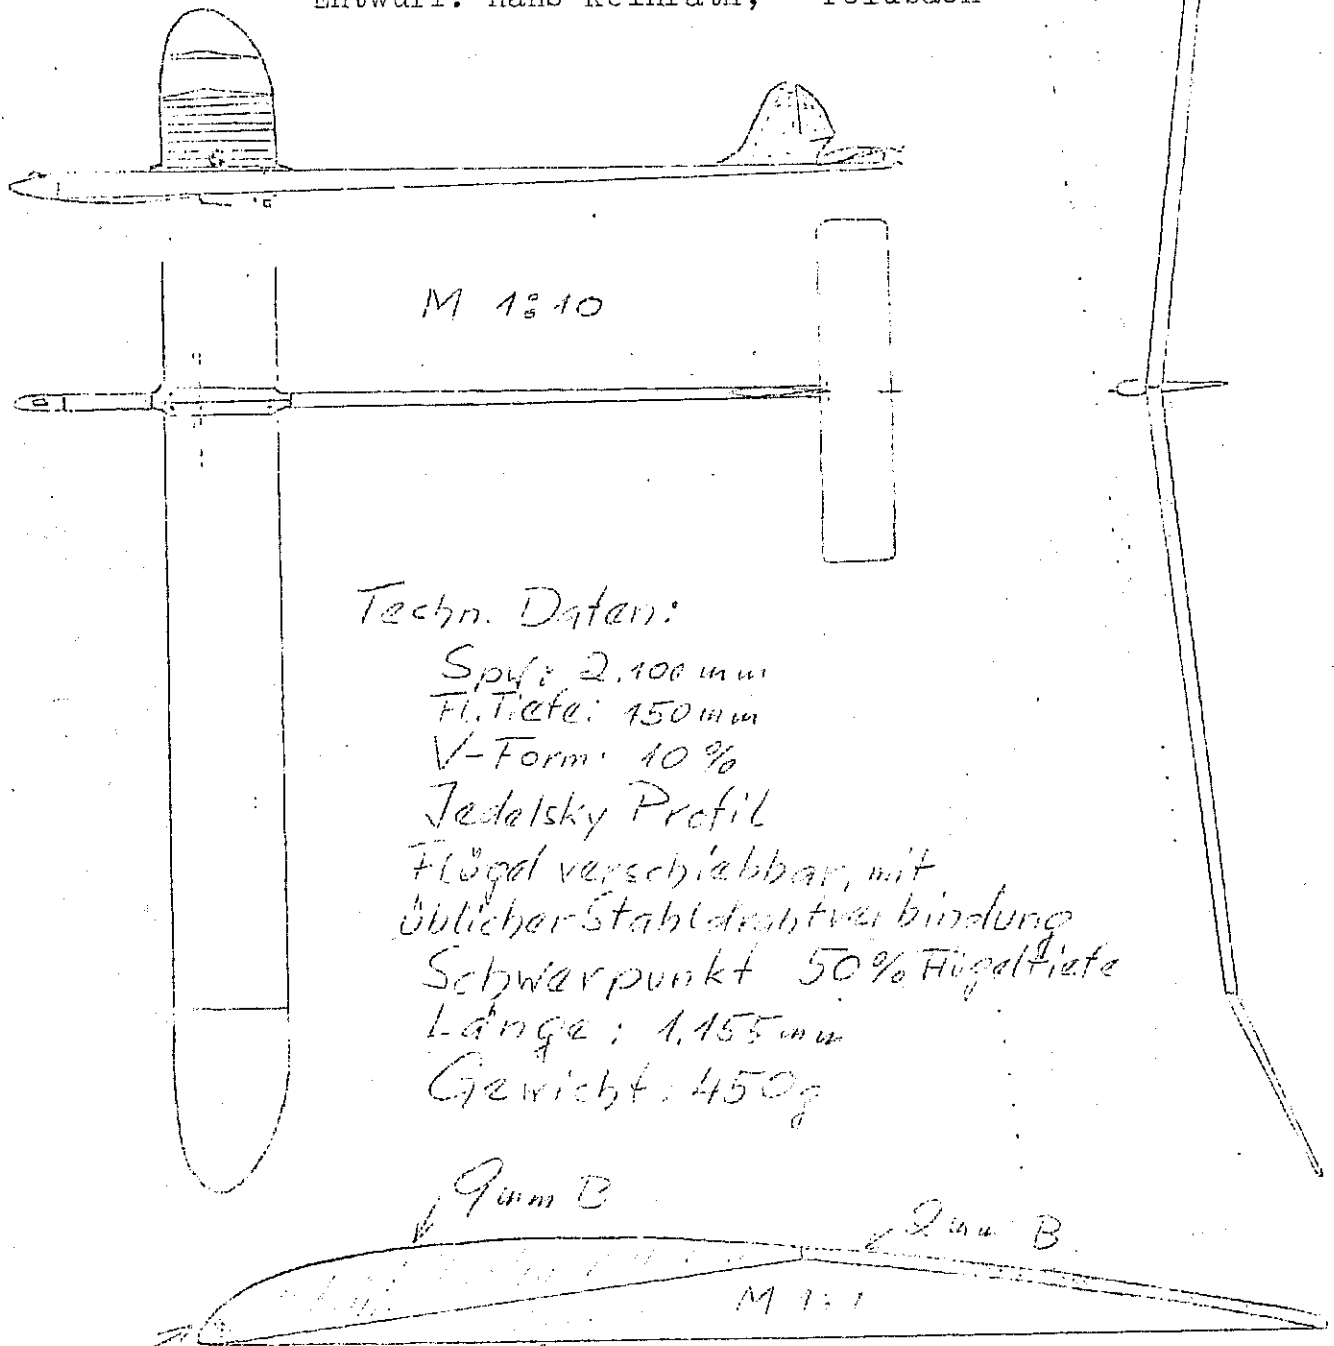 Entwurf: Hans
M 1:10
Techn. Daten:
Spw: 2.100 mm
Fl. Tiefe: 150 mm
V-Form: 10 %
Jedelsky Profil
Flügel verschiebbar, mit
üblicher Stahldrahtverbindung
Schwerpunkt 50% Flügeltiefe
Länge: 1.155 mm
Gewicht: 450g
9 mm B
2 mm B.
M 1:1